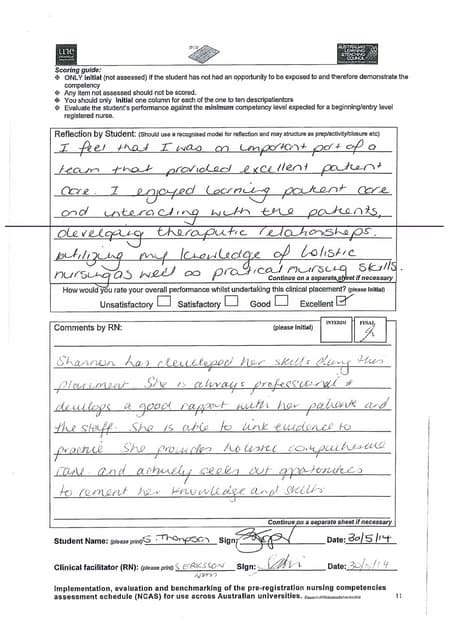 une
AUSTRALIAN
LEARNING
& TEACHING
COUNCIL
Scoring guide:
❖ ONLY initial (not assessed) if the student has not had an opportunity to be exposed to and therefore demonstrate the
competency
❖ Any item not assessed should not be scored.
❖ You should only initial one column for each of the one to ten descriptientors
❖ Evaluate the student's performance against the minimum competency level expected for a beginning/entry level
registered nurse.
Reflection by Student: (Should use a recognised model for reflection and may structure as prep/activity/closure etc)
I feel that I was an important part of a
team that provided excellent patient
care. I enjoyed learning patient care
and interacting with the patients,
developing theraputic relationships.
utilizing my knowledge of holistic
nursing as well as pratical nursing skills.
Continue on a separate sheet if necessary
How would you rate your overall performance whilst undertaking this clinical placement? (please initial)
Unsatisfactory Satisfactory Good Excellent
Comments by RN: (please initial) INTERIM FINAL
Shannon has developed her skills during this
placement. She is always professional &
develops a good rapport with her patients and
the staff. She is able to link evidence to
practice She provides holistic comprehensive
care and actively seeks out oppotunities
to cement her knowledge and skills
Continue on a separate sheet if necessary
Student Name: (please print) S. Thompson Sign: Date: 30/5/14
Clinical facilitator (RN): (please print) S ERIKSSON Sign: Date: 30/5/14
Implementation, evaluation and benchmarking of the pre-registration nursing competencies
assessment schedule (NCAS) for use across Australian universities.
11